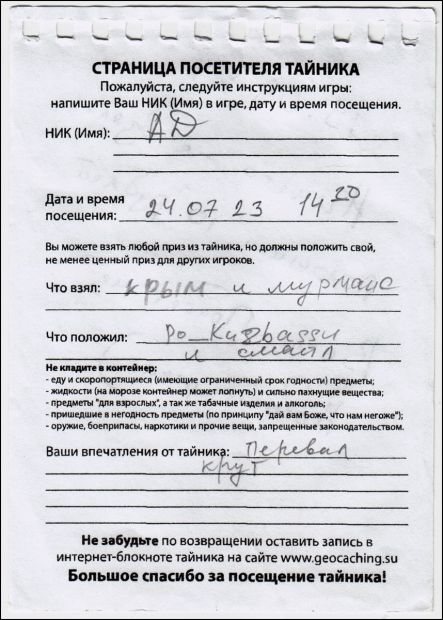 СТРАНИЦА ПОСЕТИТЕЛЯ ТАЙНИКА
Пожалуйста, следуйте инструкциям игры:
напишите Ваш НИК (Имя) в игре, дату и время посещения.
НИК (Имя): АД
Дата и время
посещения: 24.07 23 14 20
Вы можете взять любой приз из тайника, но должны положить свой,
не менее ценный приз для других игроков.
Что взял: крым и мурманс
Что положил: Po_Kuzbassu
и смайл
Не кладите в контейнер:
- еду и скоропортящиеся (имеющие ограниченный срок годности) предметы;
- жидкости (на морозе контейнер может лопнуть) и сильно пахнущие вещества;
- предметы "для взрослых", а так же табачные изделия и алкоголь;
- пришедшие в негодность предметы (по принципу "дай вам Боже, что нам негоже");
- оружие, боеприпасы, наркотики и прочие вещи, запрещенные законодательством.
Ваши впечатления от тайника: Перевал
крут
Не забудьте по возвращении оставить запись в
интернет-блокноте тайника на сайте www.geocaching.su
Большое спасибо за посещение тайника!